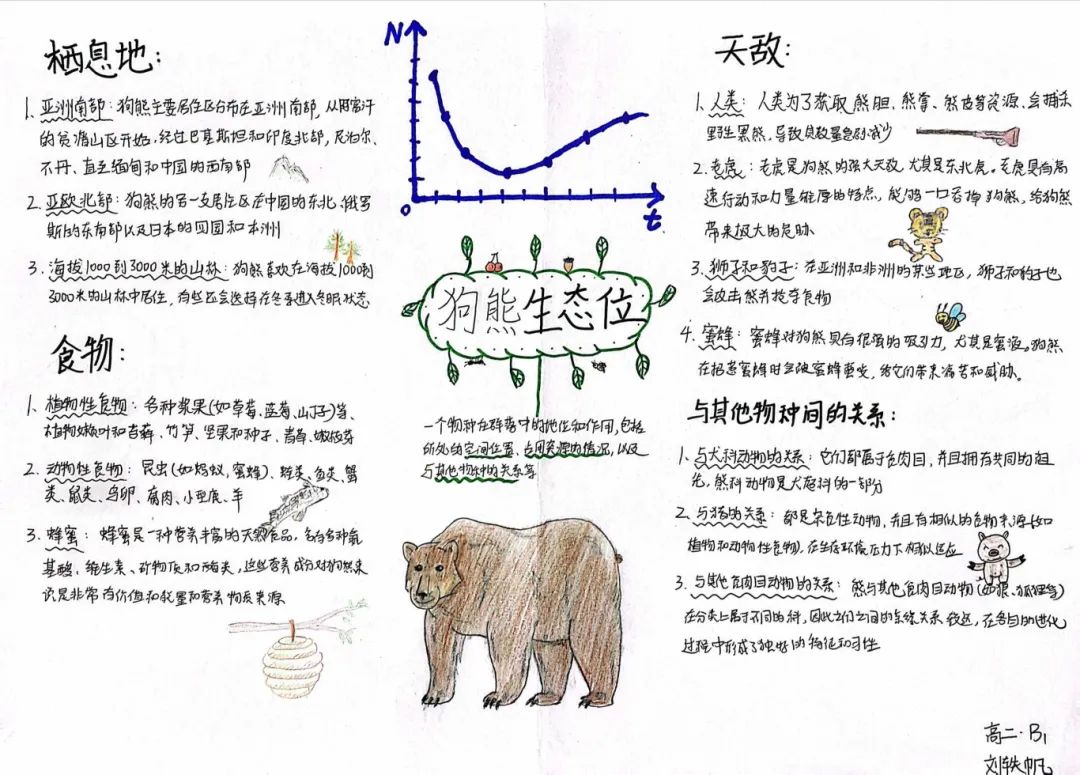 栖息地:
1. 亚洲南部: 狗熊主要居住区分布在亚洲南部, 从阿富汗
的贫瘠山区开始, 经过巴基斯坦和印度北部, 尼泊尔、
不丹、直至缅甸和中国的西南部
2. 亚欧北部: 狗熊的另一支居住区在中国的东北、俄罗
斯的东南部以及日本的四国和本洲
3. 海拔1000到3000米的山林: 狗熊喜欢在海拔1000到
3000米的山林中居住, 有些还会选择在冬季进入冬眠状态
食物:
1. 植物性食物: 各种浆果(如草莓、蓝莓、山丁子)等、
植物嫩叶和苔藓、竹笋、坚果和种子、青草、嫩枝芽
2. 动物性食物: 昆虫(如蚂蚁, 蜜蜂)、蛙类、鱼类、蟹
类、鼠类、鸟卵、腐肉、小型鹿、羊
3. 蜂蜜: 蜂蜜是一种营养丰富的天然食品, 含有多种氨
基酸、维生素、矿物质和酶类, 这些营养成分对狗熊来
说是非常有价值和能量和营养物质来源
N
0
t
狗熊生态位
一个物种在群落中的地位和作用, 包括
所处的空间位置、占用资源的情况, 以及
与其他物种的关系等
天敌:
1. 人类: 人类为了获取熊胆、熊掌、熊皮等资源, 会捕杀
野生黑熊, 导致其数量急剧减少
2. 老虎: 老虎是狗熊的强大天敌, 尤其是东北虎。老虎具有高
速行动和力量雄厚的特点, 能够一口吞掉狗熊, 给狗熊
带来极大的危胁
3. 狮子和豹子: 在亚洲和非洲的某些地区, 狮子和豹子也
会攻击熊并抢夺食物
4. 蜜蜂: 蜜蜂对狗熊具有很强的吸引力, 尤其是蜜源。狗熊
在招惹蜜蜂时会被蜜蜂蜇咬, 给它们带来痛苦和威胁。
与其他物种间的关系:
1. 与犬科动物的关系: 它们都属于食肉目, 并且拥有共同的祖
先, 熊科动物是犬超科的一部分
2. 与猪的关系: 都是杂食性动物, 并且有相似的食物来源(如
植物和动物性食物), 在生存环境压力下有相似适应
3. 与其他食肉目动物的关系: 熊与其他食肉目动物(如狼、狐狸等)
在分类上属于不同的科, 因此它们之间的亲缘关系较远, 在各自的进化
过程中形成了独特的特征和习性
高二·B1
刘轶帆